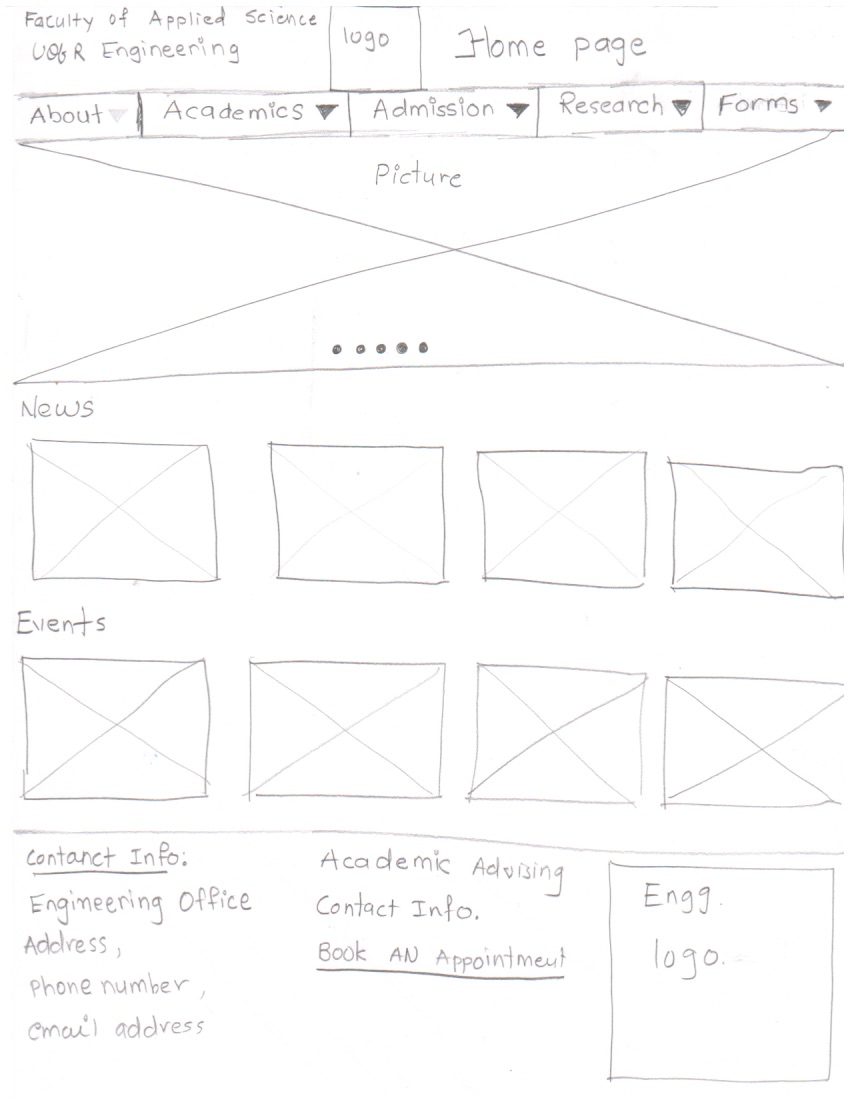 Faculty of Applied Science
UofR Engineering
logo
Home page
About
Academics
Admission
Research
Forms
Picture
News
Events
Contanct Info:
Engineering Office
Address,
Phone number,
email address
Academic Advising
Contact Info.
Book AN Appointment
Engg.
logo.